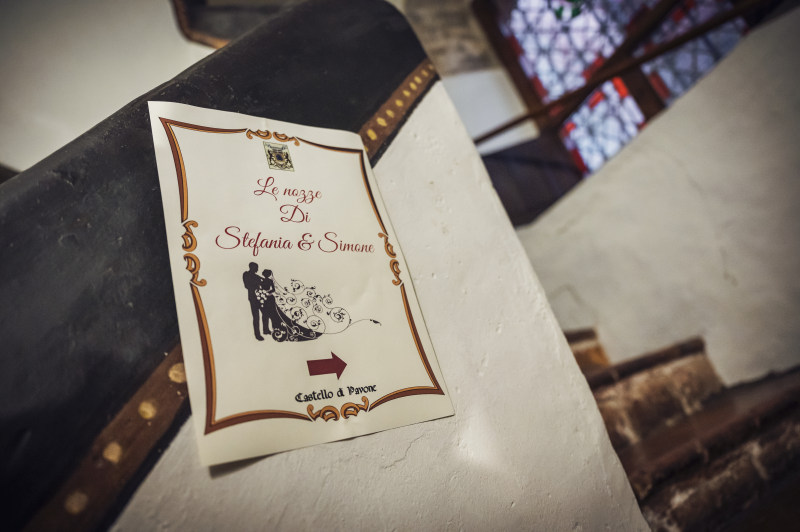 Le nozze
Di
Stefania & Simone
Castello di Pavone